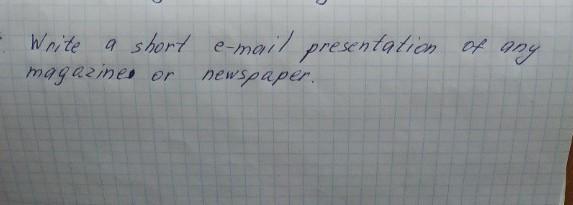 Write a short e-mail presentation of any
magazine or newspaper.